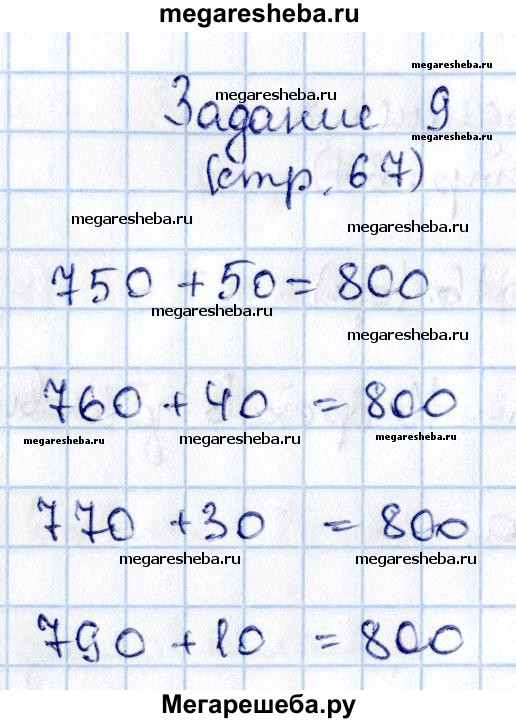 megaresheba.ru
megaresheba.ru
megaresheba.ru
Задание 9
(стр. 67)
megaresheba.ru
megaresheba.ru
750 + 50 = 800
megaresheba.ru
megaresheba.ru
760 + 40 = 800
megaresheba.ru
megaresheba.ru
megaresheba.ru
770 + 30 = 800
megaresheba.ru
megaresheba.ru
790 + 10 = 800
Мегарешеба.ру